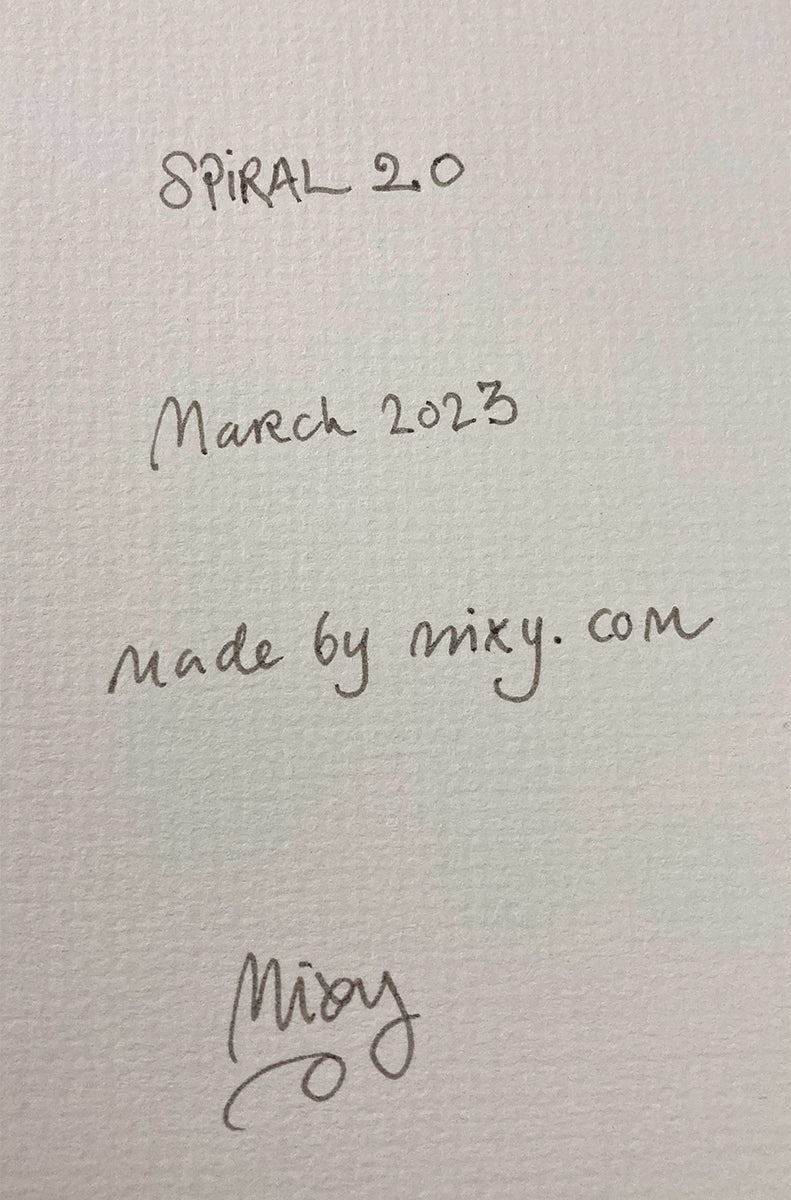 SPiRAL 2.0
March 2023
made by mixy.com
Mixy